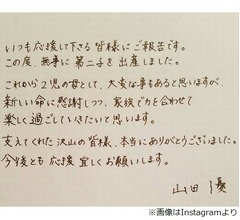 いつも応援して下さる皆様にご報告です。
この度、無事に第二子を出産しました。
これから2児の母として、大変な事もあると思いますが、
新しい命に感謝しつつ、家族で力を合わせて
楽しく過ごしていきたいと思います。
支えてくれた沢山の皆様、本当にありがとうございました。
今後とも応援宜しくお願いします。
山田優
※画像はInstagramより